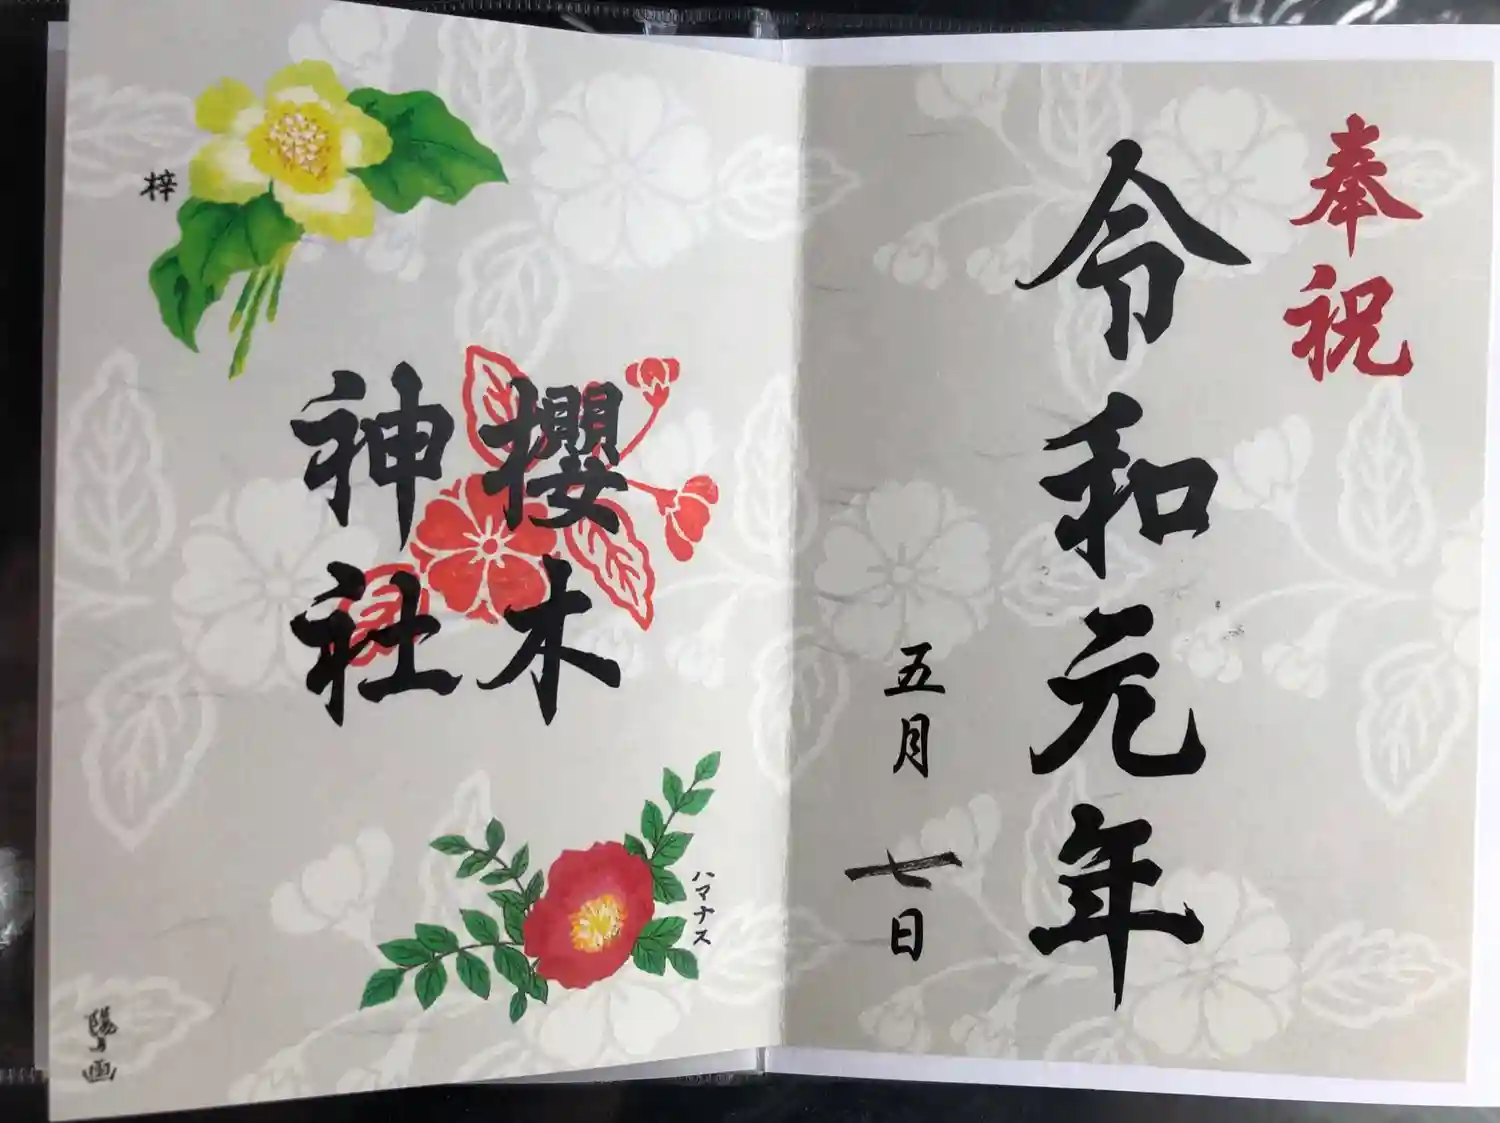 奉祝
令和元年
五月七日
櫻木
神社
梓
ハマナス